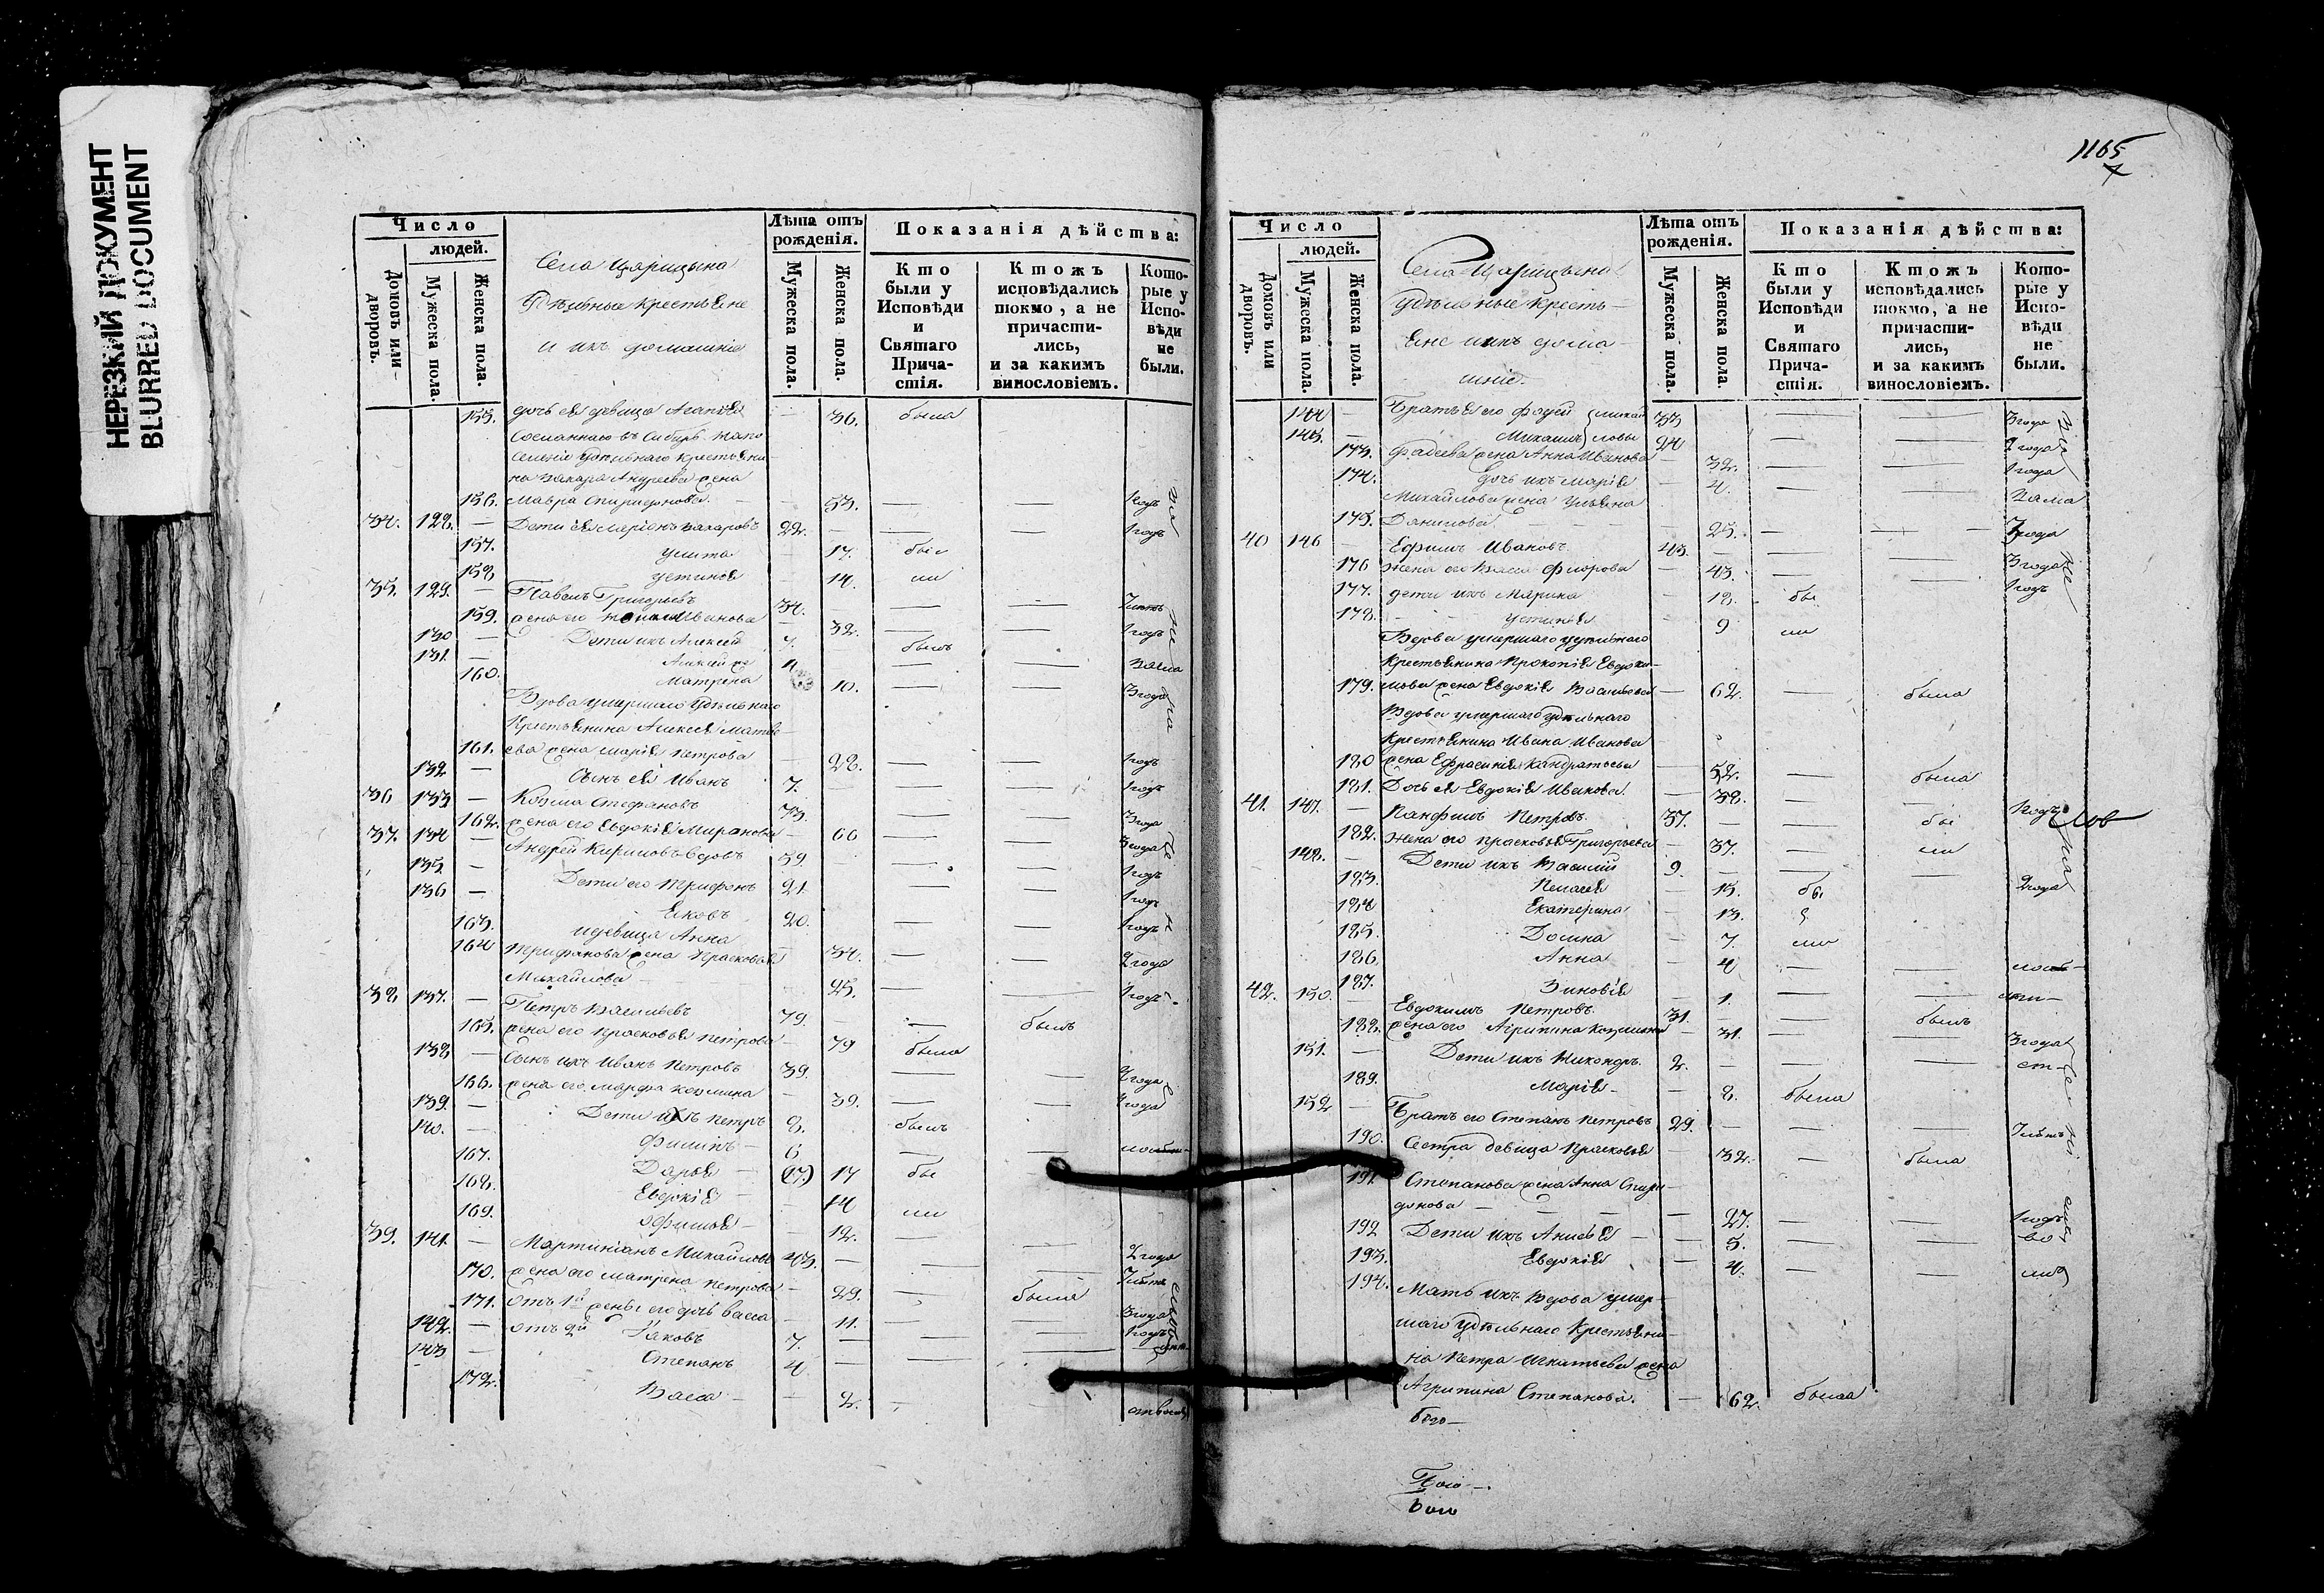 НЕРЕЗКИЙ ДОКУМЕНТ
BLURRED DOCUMENT
Число
людей.
Домовъ или дворовъ.
Мужеска пола.
Женска пола.
Села Царицына
Удѣльные крестьяне
и ихъ домашніе
Лѣта отъ рожденія.
Мужеска пола.
Женска пола.
Показанія дѣйства:
Кто были у Исповѣди и Святаго Причастія.
Ктожъ исповѣдались токмо, а не причастились, и за какимъ винословіемъ.
Которые у Исповѣди не были.
155. дочь ея девица Агапія — 36. была
Сосланнаго въ Сибирь на по
селеніе удѣльнаго крестьяни-
на Захара Андреева жена
156. Мавра Спиридонова — 53. — — 1 годъ
34. 128. — Дети ея Ларіонъ Захаровъ 22. — — 1 годъ
157. улита — 17. бы
158 устинія — 14. ли
35. 129. — Павелъ Григорьевъ 34. — — 7 летъ
159. жена его Иванова — 32. — — 1 годъ
130 — Дети ихъ Алексей 7. былъ
131. — Алексей же 4 — —
160. Матрена 10. — — 3 года
Вдова умершаго удѣльнаго
Крестьянина Алексея Матве-
161. ева жена Марія Петрова — 28. — — 1 годъ
132 — Сынъ ея Иванъ 7. — — 1 годъ
36 133 — Козма Стефановъ 73. — — 3 года
162. жена его Евдокія Миранова — 60 — — 3 года
37. 134 — Андрей Кириловъ вдовъ 59. — — 1 годъ
135 — Дети его Трифонъ 21. — — 1 годъ
136 — Яковъ 20. — — 1 годъ
163. и девица Анна — 34. — — 2 года
164 Трифонова жена Прасковья
Михайлова — 25. — — 1 годъ
38 137. — Петръ Васильевъ 79. — былъ
165. жена его Прасковья Петрова — 79 была
138 — Сынъ ихъ Иванъ Петровъ 39. — — 2 года
166. жена его Марфа Козмина — 39. — — 2 года
139. — Дети ихъ Петръ 8. былъ
140. — Филипъ — 6 — —
167. Дарья — (17.) 17 бы
168. Евдокія — 14 ли
169. Офимья — 12. — —
39. 141. — Мартиніанъ Михайловъ 43. — — — 2 года
170. жена его Матрена Петрова — 29. — была 7 летъ
171. Отъ 1й жены его дочь Васса — 11. — — 3 года
142. — отъ 2й Яковъ 7. — — — 1 годъ
143 — Степанъ 4 — — —
172. Васса — — 2. — —
1165
7
Число
людей.
Домовъ или дворовъ.
Мужеска пола.
Женска пола.
Села Царицына
удѣльные кресть-
яне и ихъ дома-
шніе.
Лѣта отъ рожденія.
Мужеска пола.
Женска пола.
Показанія дѣйства:
Кто были у Исповѣди и Святаго Причастія.
Ктожъ исповѣдались токмо, а не причастились, и за какимъ винословіемъ.
Которые у Исповѣди не были.
144 — Братья его Фадей } михай 33 — — 3 года
145. — Михаилъ } ловы 24 — — 2 года
173. Фадеева жена Анна Иванова — 32. — — 1 года
174. Дочь ихъ Марія — 4. — —
Михайлова жена Ульяна
175. Данилова — 25. — — 7 года
40 146 — Ефимъ Ивановъ 45. — — — 3 года
176 жена его Васса Фиорова — 43. — — 1 годъ
177. дети ихъ Марина — 18. бы
178. устинія — 9 ли
Вдова умершаго удѣльнаго
крестьянина Прокопія Евдоки-
179. мова жена Евдокія Васильева — 62. — была
Вдова умершаго удѣльнаго
крестьянина Ивана Иванова
180 жена Ефрасинія Кандратьева — 52. — была
181. Дочь ея Евдокія Иванова — 38. — — 1 годъ
41. 147. — Панфилъ Петровъ 37. — — бы
182. Жена его Прасковья Григорьева — 37. — ли
148. — Дети ихъ Василій 9. — — — 2 года
183. Пелагея — 15. бы
184 Екатерина — 13.
185. Домна — 7. ли
186. Анна — 4 — —
187. Зиновія — 1. — —
42. 150. — Евдокимъ Петровъ 31. — — былъ
188. жена его Агрипина Козмина — 31. — — 3 года
151. — Дети ихъ Никандръ 2. — —
189. Марія — — 8. была
152 — Братъ его Степанъ Петровъ 29. — — — 7 летъ
190. Сестра девица Прасковья — 32. — была
191. Степанова жена Анна Спири-
донова — — — — 27. — — 1 годъ
192 Дети ихъ Анисья — — 5. — —
193. Евдокія — 4. — —
194. Мать ихъ вдова умер-
шаго удѣльнаго крестьяни-
на Петра Игнатьева жена
Агрипина Степанова. — 62. была